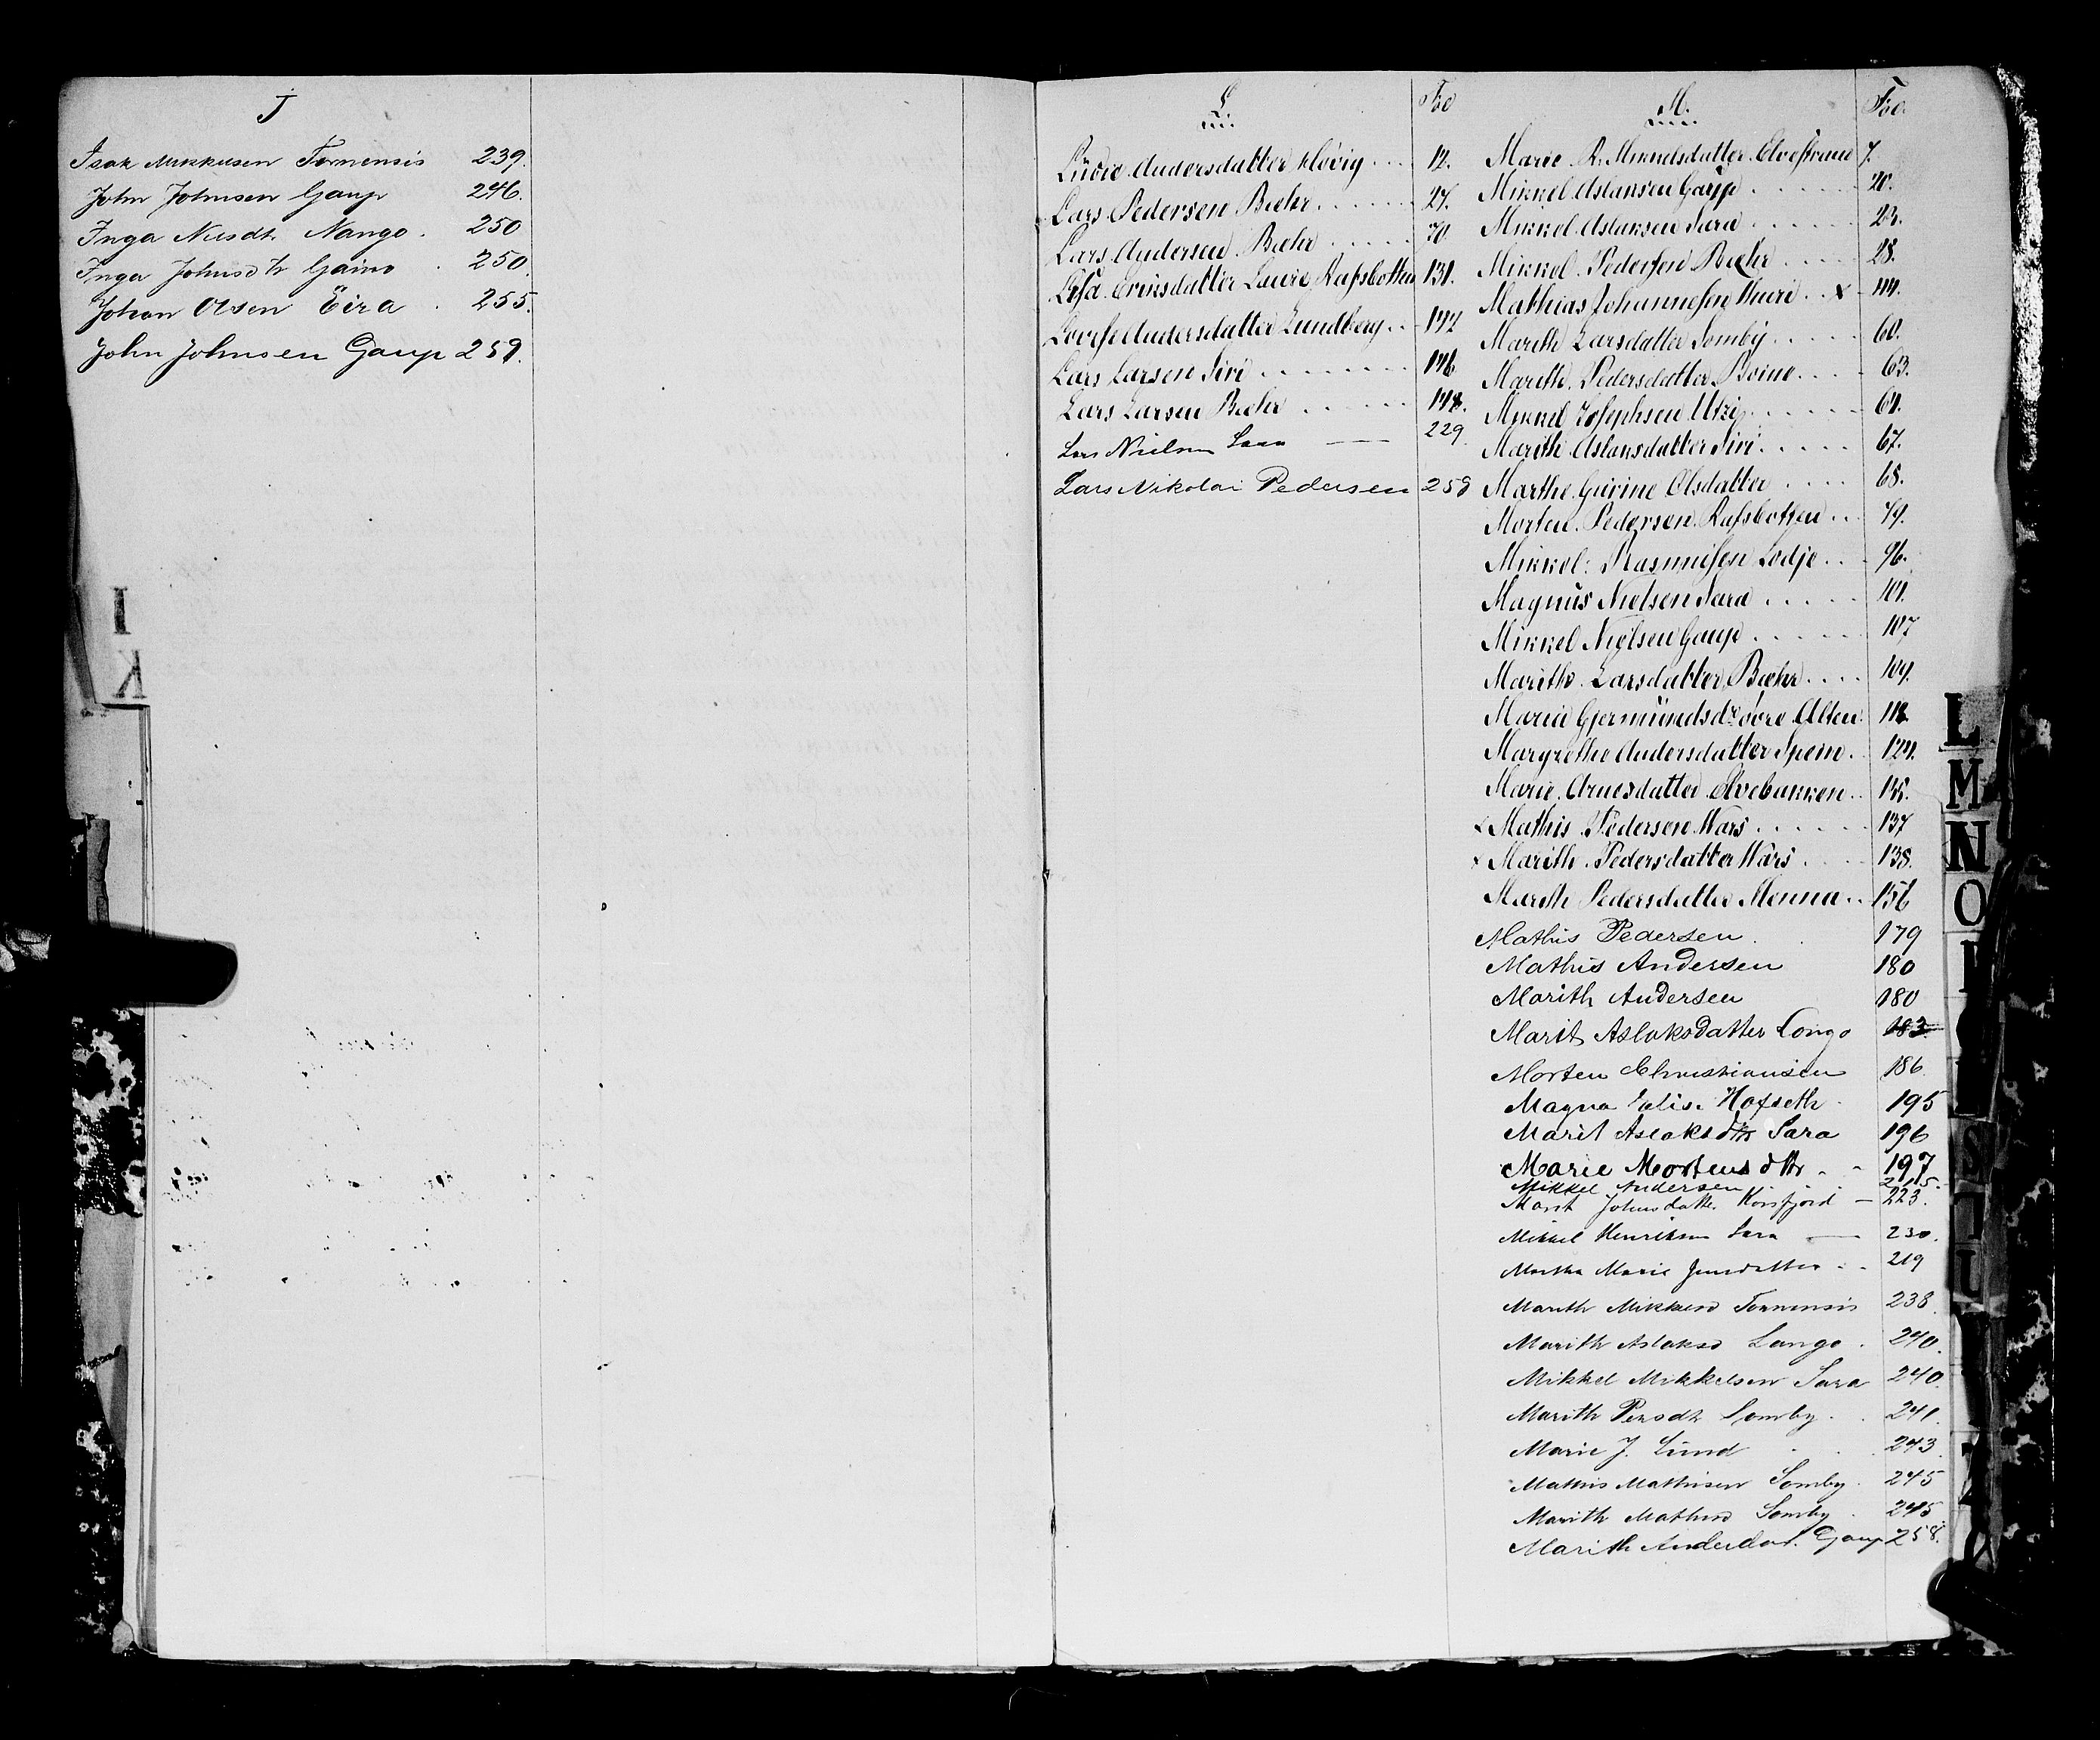 J
Isak Mikkelsen Tornensis 239.
John Johnsen Gaup 246.
Inga Nilsdtr Nango. 250
Inga Johnsdtr Gaino . 250.
Johan Olsen Eira . 255.
John Johnsen Gaup 259.
I
K
L. Fol
Andersdatter Kløvig . . . 12.
Lars Pedersen Bæhr . . . . . . 27.
Lars Andersen Bæhr . . . . . 70.
Lisa Eriksdatter Rafsbotten 131.
Lovise Andersdatter Lundberg . . 142
Lars Larsen Siri . . . . . . . . 146
Lars Larsen Bæhr . . . . . . 148.
Lars Nielsen Sara — 229.
Lars Nikolai Pedersen 259
M. Fol.
Marie A. Mikkelsdatter Elvestrand 7.
Mikkel Aslaksen Gaup . . . . . . 20.
Mikkel Aslaksen Sara . . . . . . 23.
Mikkel Pedersen Bæhr . . . . . 28.
Mathias Johannesen Thuri . . x 44.
Marith Larsdatter Somby . . . . . 60.
Marith Pedersdatter Boine . . . . 63.
Mikkel Josephsen Utzi . . . . . . 64.
Marith Aslaksdatter Siri . . . . . 67.
Marthe Gurine Olsdatter . . . . 68.
Morten Pedersen Rafsbotten . . 79.
Mikkel Rasmusen Lodje . . . 96.
Magnus Nielsen Sara . . . . . 101.
Mikkel Nielsen Gaup . . . . . . 107
Marith Larsdatter Bæhr . . . . 109.
Maria Gjermundsdr øvre Alten 118.
Margrethe Andersdatter Spein . . 124.
Marie Arnesdatter Elvebakken . . 135.
x Mathis Pedersen Wars . . . . . . 137
x Marith Pedersdatter Wars . . . . 138.
Marith Pedersdatter Menna . . 156
Mathis Pedersen . . 179
Mathis Andersen 180
Marith Andersen 180
Marit Aslaksdatter Longo 183.
Morten Christiansen 186.
Magna Elise Hofseth . 195
Marit Aslaksdtr Sara 196
Marie Mortensdtr . . 197
Mikkel Andersen 215.
Marit Johnsdatter Korsfjord — 223.
Mikkel Henriksen Sara — 230.
Martha Marie Jensdatter . . 219
Marith Mikkelsd Tornensis 238.
Marith Aslaksd Lango . 240.
Mikkel Mikkelsen Sara 240.
Marith Persdtr Somby . . 241.
Marie J. Lund . . 243
Mathis Mathisen Somby . 245
Marith Mathisd Somby . 245.
Marith Andersdat. Gaup 258.
L
M
N
O
S
T
U